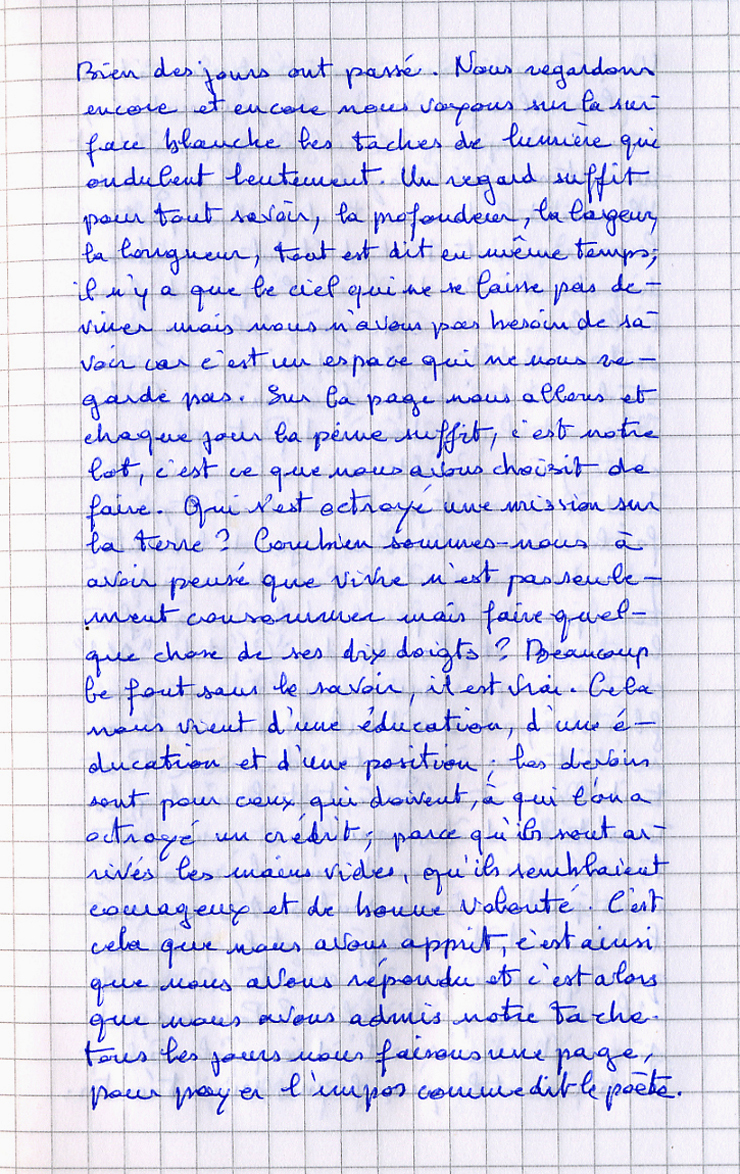 Bien des jours ont passé. Nous regardons
encore et encore nous voyons sur la sur-
face blanche les taches de lumière qui
ondulent lentement. Un regard suffit
pour tout savoir, la profondeur, la largeur,
la longueur, tout est dit en même temps;
il n'y a que le ciel qui ne se laisse pas de-
viner mais nous n'avons pas besoin de sa-
voir car c'est un espace qui ne nous re-
garde pas. Sur la page nous allons et
chaque jour la peine suffit, c'est notre
lot, c'est ce que nous avons choisit de
faire. Qui s'est octroyé une mission sur
la terre? Combien sommes-nous à
avoir pensé que vivre n'est pas seule-
ment consommer mais faire quel-
que chose de ses dix doigts? Beaucoup
le font sans le savoir, il est vrai. Cela
nous vient d'une éducation, d'une é-
ducation et d'une position; les devoirs
sont pour ceux qui doivent, à qui l'on a
octroyé un crédit; parce qu'ils sont ar-
rivés les mains vides, qu'ils semblaient
courageux et de bonne volonté. C'est
cela que nous avons apprit, c'est ainsi
que nous avons répondu et c'est alors
que nous avons admis notre tache.
tous les jours nous faisons une page,
pour payer l'impos comme dit le poète.